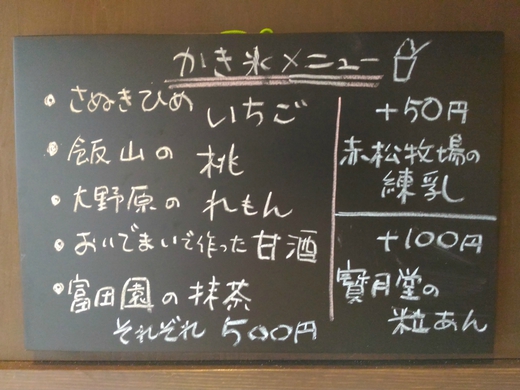 かき氷メニュー
・さぬきひめ いちご
・飯山の 桃
・大野原の れもん
・おいでまいで作った甘酒
・富田園の抹茶
それぞれ 500円
+50円
赤松牧場の
練乳
+100円
寳月堂の
粒あん